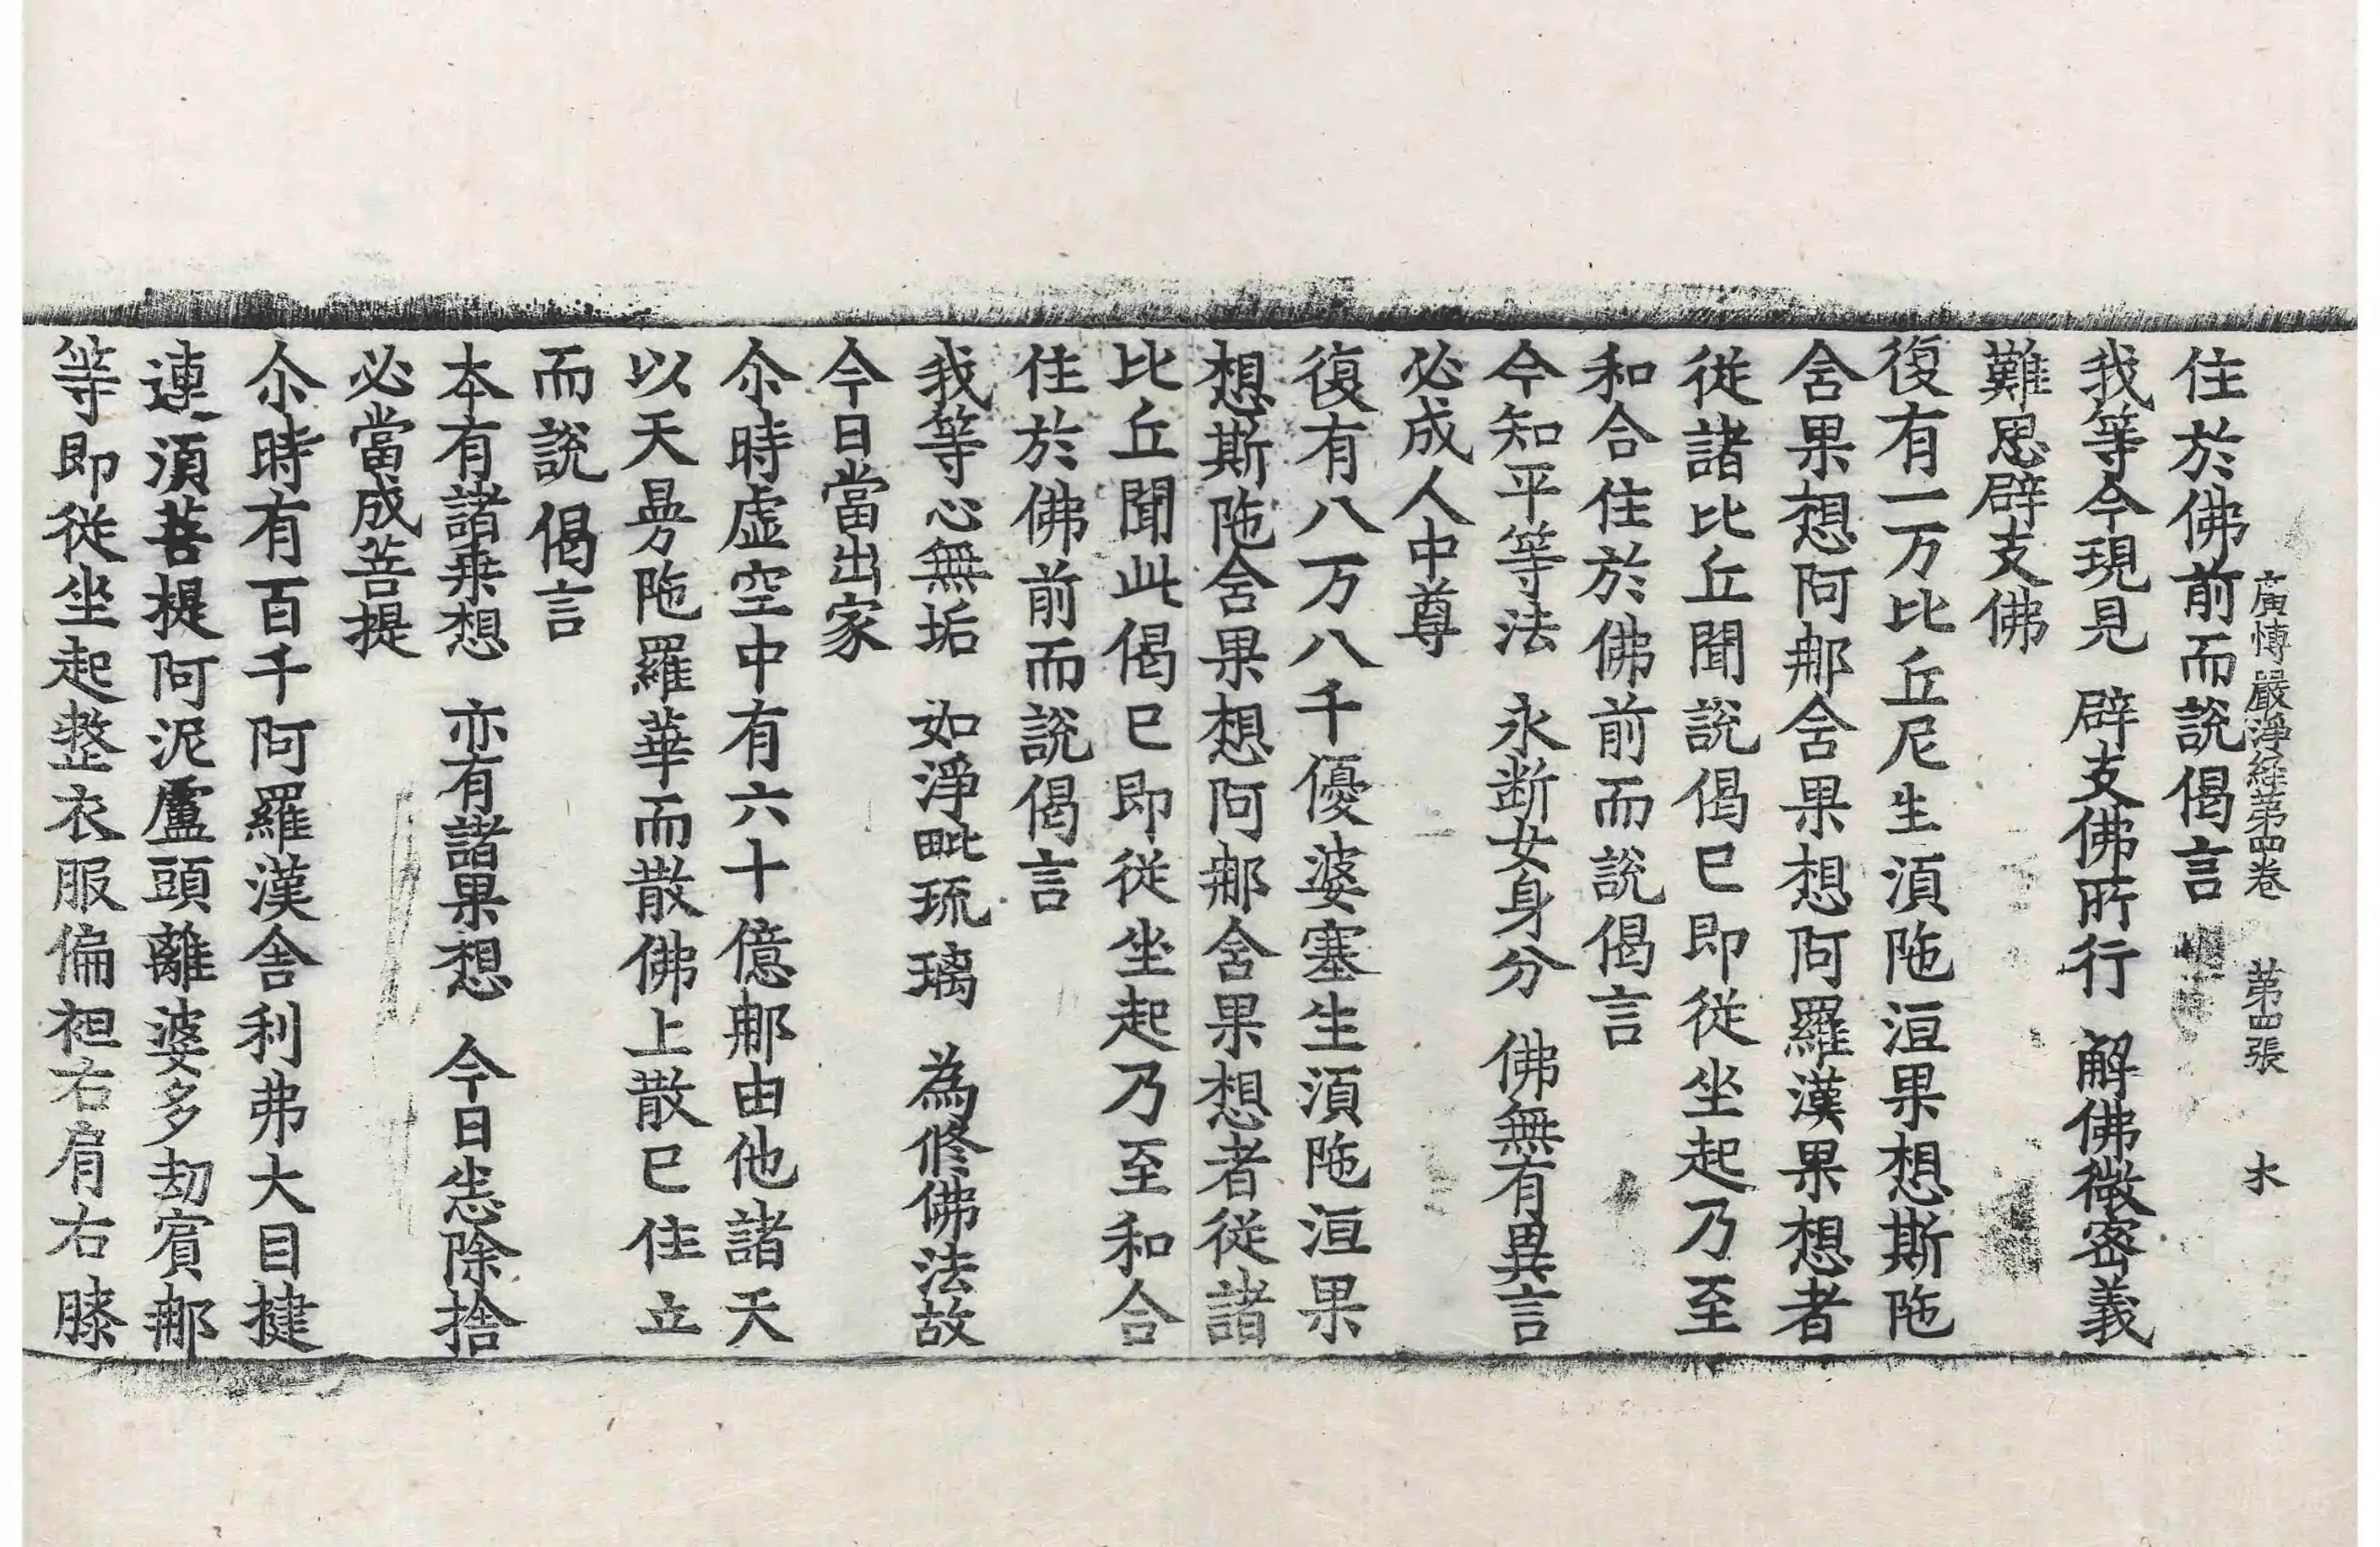 廣博嚴淨經第四卷　第四張　木
住於佛前而說偈言
我等今現見　辟支佛所行　解佛微密義
難思辟支佛
復有一万比丘尼生湏陁洹果想斯陁
舍果想阿那舍果想阿羅漢果想者
従諸比丘聞說偈已即従坐起乃至
和合住於佛前而說偈言
今知平等法　永断女身分　佛無有異言
必成人中尊
復有八万八千優婆塞生湏陁洹果
想斯陁舍果想阿那舍果想者従諸
比丘聞此偈已即従坐起乃至和合
住於佛前而說偈言
我等心無垢　如淨毗琉璃　為修佛法故
今日當出家
尒時虛空中有六十億那由他諸天
以天曼陁羅華而散佛上散已住立
而說偈言
本有諸乘想　亦有諸果想　今日悉除捨
必當成菩提
尒時有百千阿羅漢舎利弗大目揵
連湏菩提阿泥盧頭離婆多劫賓那
等即従坐起整衣服偏袒右肩右膝